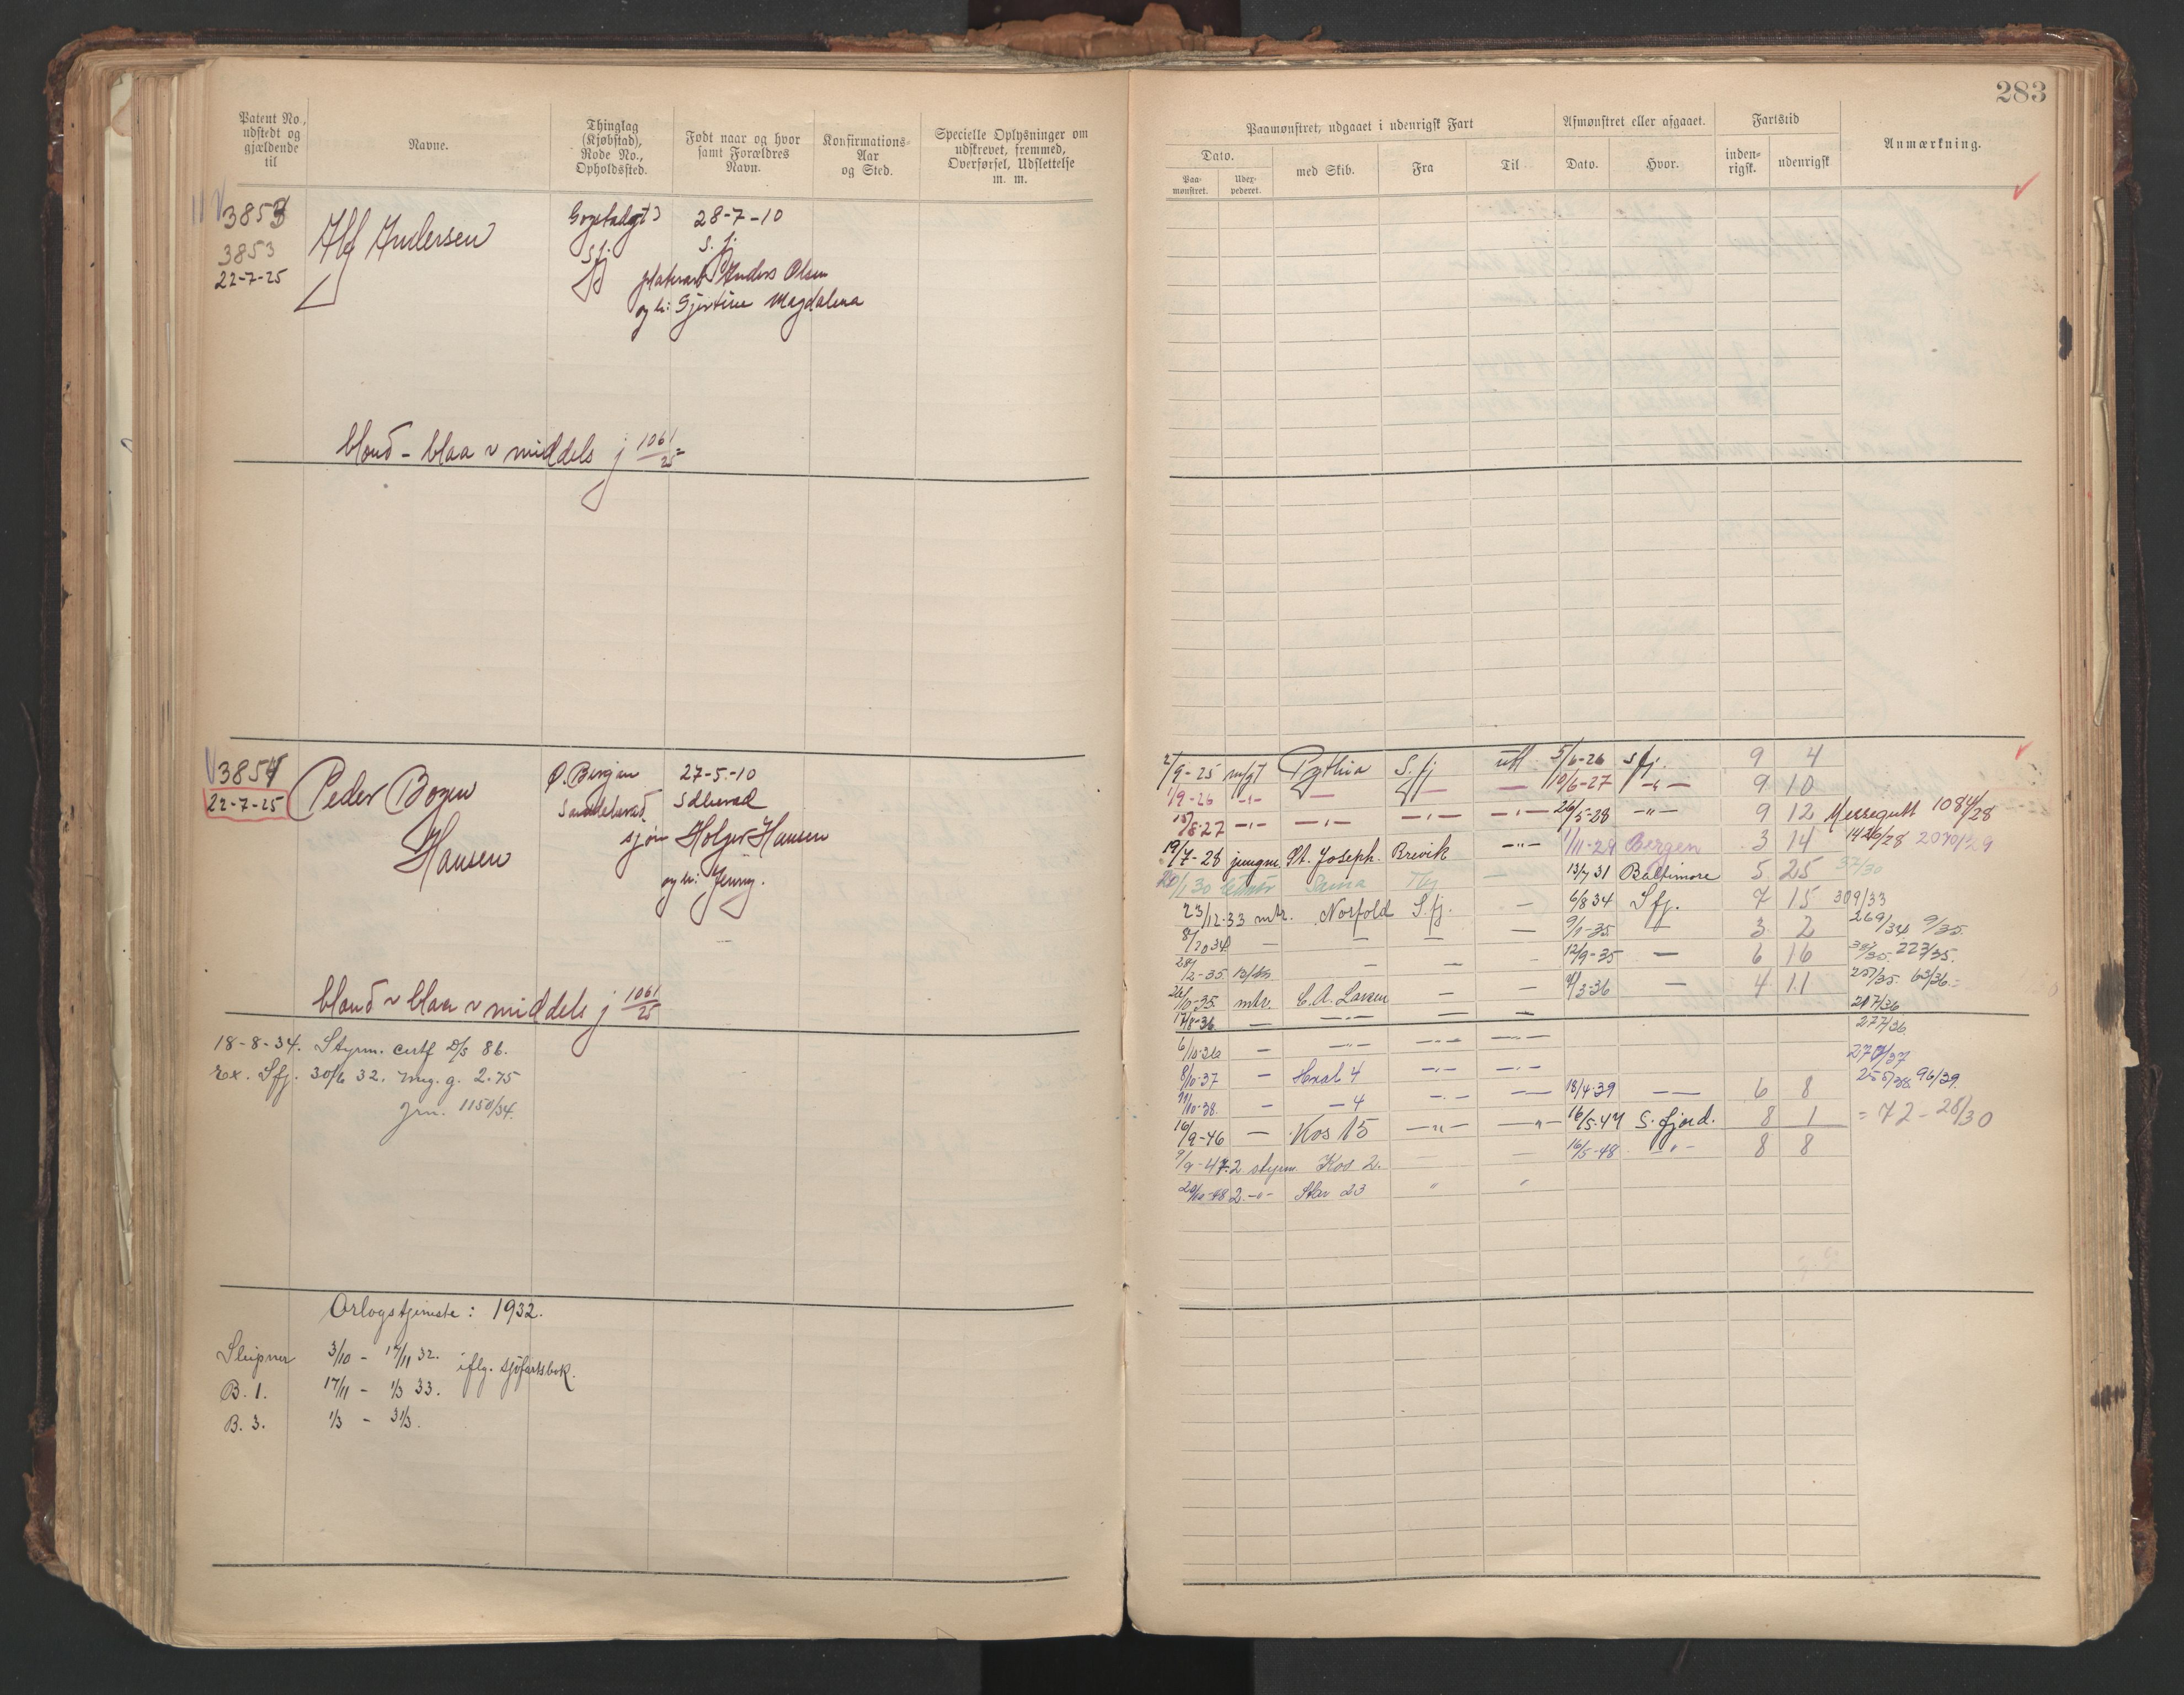 283
Patent No., udstedt og gjældende til
Navne.
Thinglag (Kjøbstad), Rode No., Opholdssted.
Født naar og hvor samt Forældres Navn.
Konfirmations-Aar og Sted.
Specielle Oplysninger om udskrevet, fremmed, Overførsel, Udslettelse m. m.
Paamønstret, udgaaet i udenrigsk Fart
Afmønstret eller afgaaet.
Fartstid
Anmærkning.
Dato.
Paa-mønstret.
Udex-pederet.
med Skib.
Fra
Til
Dato.
Hvor.
inden-rigsk.
udenrigsk
3853
3853
22-7-25
Alf Andersen
S. fj.
28-7-10
S. fj.
Anders Olsen
og h: Gjertine Magdalena
blond - blaa v middels j 1061/25
3854
22-7-25
Peder Bogen
Hansen
Ø. Bergan
27-5-10
Sdherad
sjøm Holger Hansen
og h: Jenny.
blond v blaa v middels j 1061/25
18-8-34. Styrm. certf D/S 86.
Ex. Sfj. 30/6 32. mg. g. 2.75
jrn. 1150/34.
Orlogstjeneste: 1932.
Sleipner 3/10 - 17/11 32. iflg. sjøfartsbok.
B. 1. 17/11 - 1/3 33.
B. 3. 1/3 - 31/3.
2/9-25 m/gt Pythia S. fj utl 5/6-26 Sfj. 9 4
1/9-26 -"- — — — 10/6-27 -"- 9 10
15/8-27 -"- -"- -"- -"- 26/5-28 -"- 9 12 Messegutt 1084/28
19/7-28 jungm. St. Joseph. Brevik -"- 1/11-29 Bergen 3 14 1429/28 2070/29
20/1 30 Tbg — 13/7 31 Baltimore 5 25 37/30
23/12-33 mtr. Norfold S. fj. — 6/8 34 Sfj. 7 15 309/33
8/10 34 — — — — 9/1-35 — 3 2 269/34 9/35.
28/2-35 — — — 12/9-35 — 6 16 223/35.
26/10-35 mtr. C. A. Larsen — — 4/3-36 — 4 11 257/35. 63/36.
17/8-36 — -"- — — 217/36
6/10-36 — -"- -"- -"- 277/36
8/10-37 — Hval 4 -"- -"- 270/37
11/10-38. — — 4 -"- -"- 18/4-39 -"- 6 8 255/38 96/39.
16/9-46 — Kos 15 -"- -"- 16/5-47 S. fjord. 8 1 = 72 - 28/30
9/9-47 2 styrm Kos 2. — — 16/5-48 -"- 8 8
20/10-48 2 -"- Star 23 " "